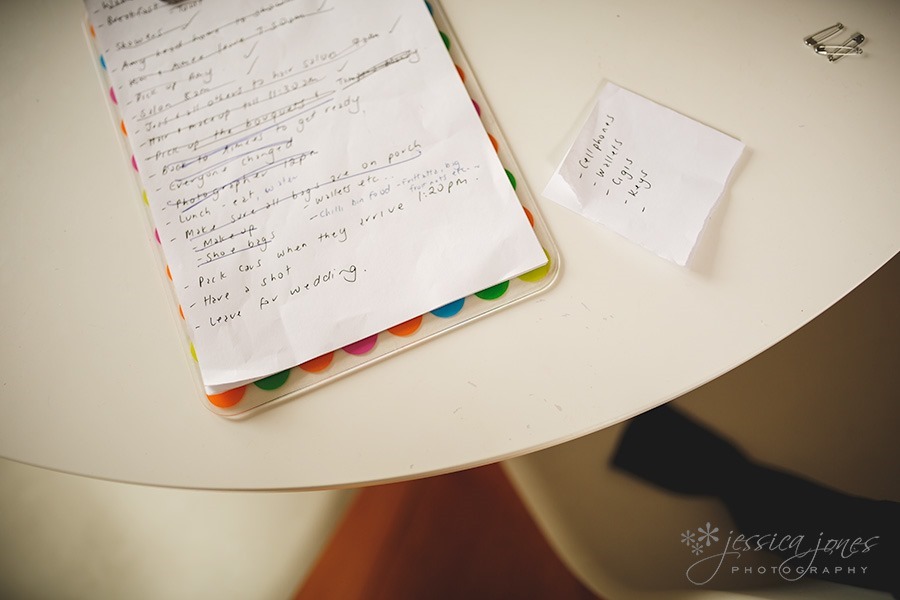 - Breakfast
- Showers
- Pick up Amy
- Salon 8am
- Just + all others to hair salon 9am
- Hair + makeup till 11:30am
- Pick up the bouquets +
- Back to Aimees to get ready,
- Everyone changed
- Photographer 12pm
- Lunch - eat, water
- Make sure all bags are on porch
- Make up - Wallets etc..
- Shoe bags - Chilli bin food
- Pack cars when they arrive 1:20pm...
- Have a shot
- Leave for wedding.
- Cellphones
- Wallets
- Cigs
- Keys
-
jessica jones
PHOTOGRAPHY